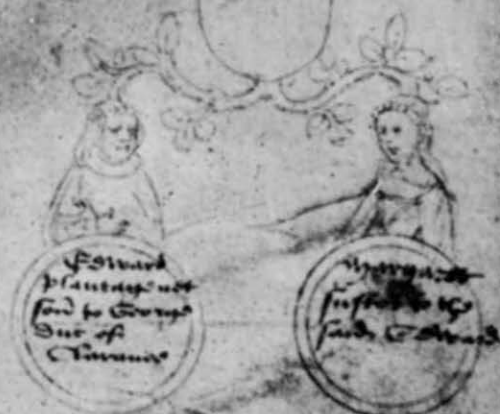 Edward
plantagenet
son to George
Duc of
Clarance
Margarett
suster to the
said Edward